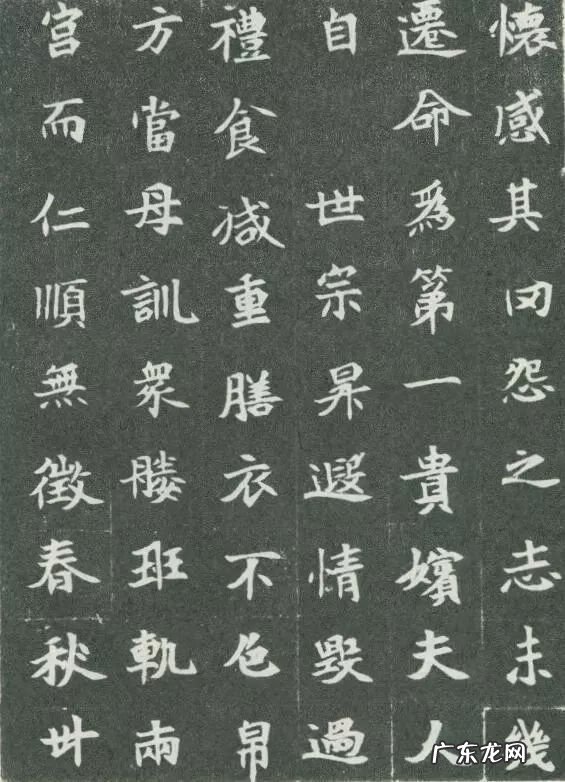 懷感其罔怨之志未幾
遷命爲第一貴嬪夫人
自 世宗昇遐情毀過
禮食減重膳衣不色帛
方當母訓衆媵班軌兩
宮而仁順無徵春秋卅
广东龙网